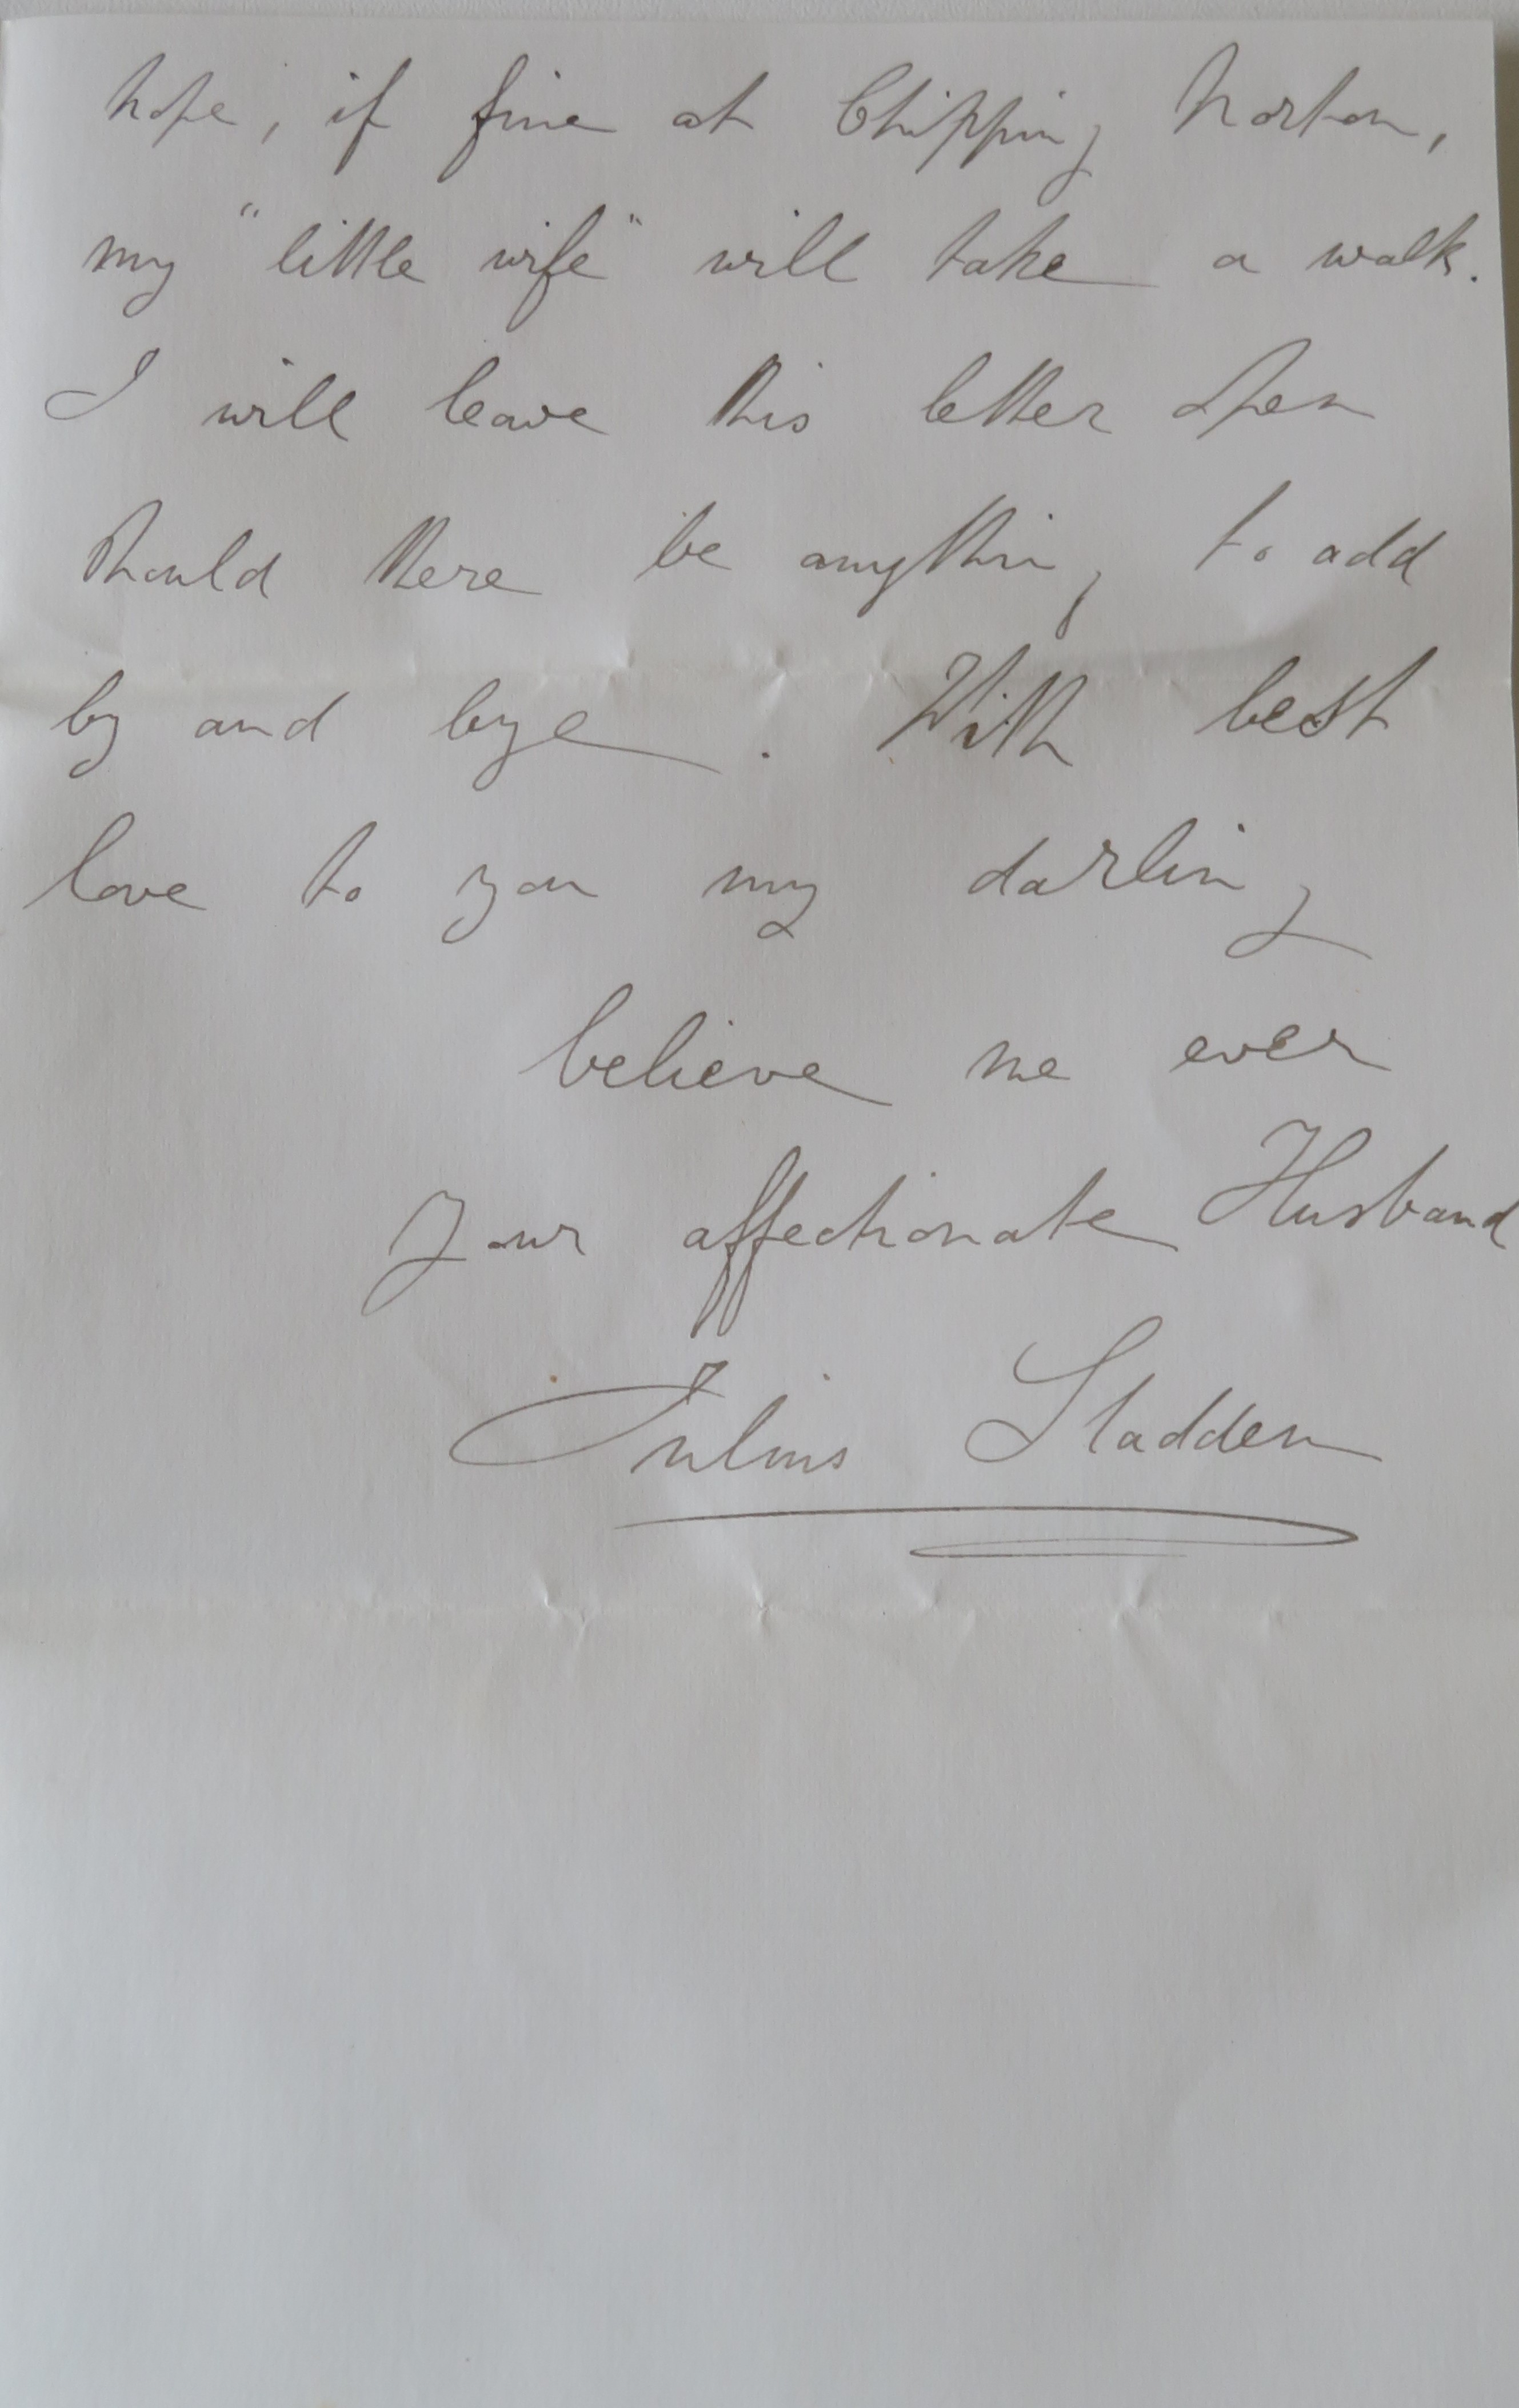 hope, if fine at Chipping Norton,
my "little wife" will take a walk.
I will leave this letter open
should there be anything to add
by and bye. With best
love to you my darling
believe me ever
your affectionate Husband
Julius Sladden